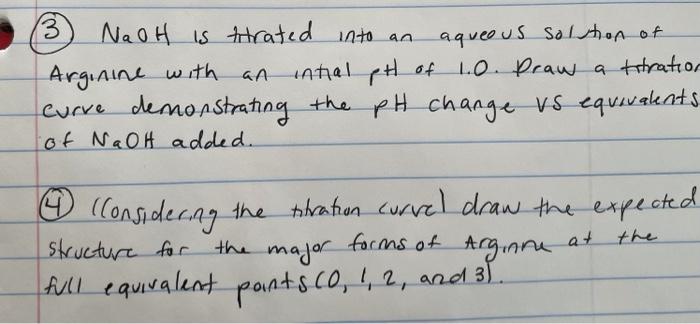 ③ NaOH is titrated into an aqueous solution of
Arginine with an intial pH of 1.0. Draw a titration
curve demonstrating the pH change vs equivalents
of NaOH added.
④ (Considering the titration curve) draw the expected
structure for the major forms of Arginine at the
full equivalent points (0, 1, 2, and 3).